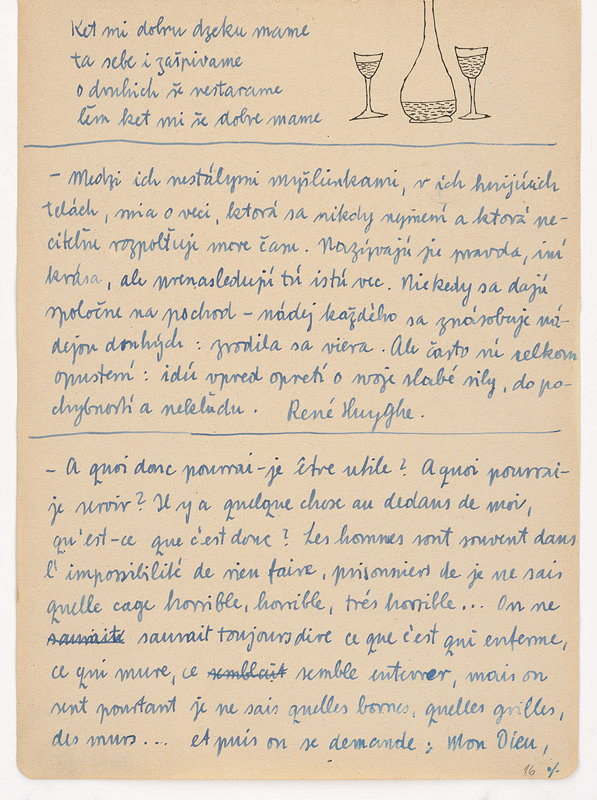 Ket mi dobru dzeku mame
ta sebe i zašpivame
o druhich še nestarame
lem ket mi še dobre mame
– Medzi ich nestálymi myšlienkami, v ich hynúcich
telách, snia o veci, ktorá sa nikdy nezmení a ktorá ne-
citeľne rozpoltuje more času. Nazývajú ju pravda, iní
krása, ale prenasledujú tú istú vec. Niekedy sa dajú
spoločne na pochod – nádej každého sa znásobuje ná-
dejou druhých : zrodila sa viera. Ale často sú celkom
opustení : idú vpred opretí o svoje slabé sily, do po-
chybností a nekľudu. René Huyghe.
– A quoi donc pourrai-je être utile ? A quoi pourrai-
je servir ? Il y a quelque chose au dedans de moi,
qu'est-ce que c'est donc ? Les hommes sont souvent dans
l'impossibilité de rien faire, prisonniers de je ne sais
quelle cage horrible, horrible, trés horrible... On ne
saurait toujours dire ce que c'est qui enferme,
ce qui mure, ce semblait semble enterrer, mais on
sent pourtant je ne sais quelles bornes, quelles grilles,
des murs... et puis on se demande : Mon Dieu,
16 %